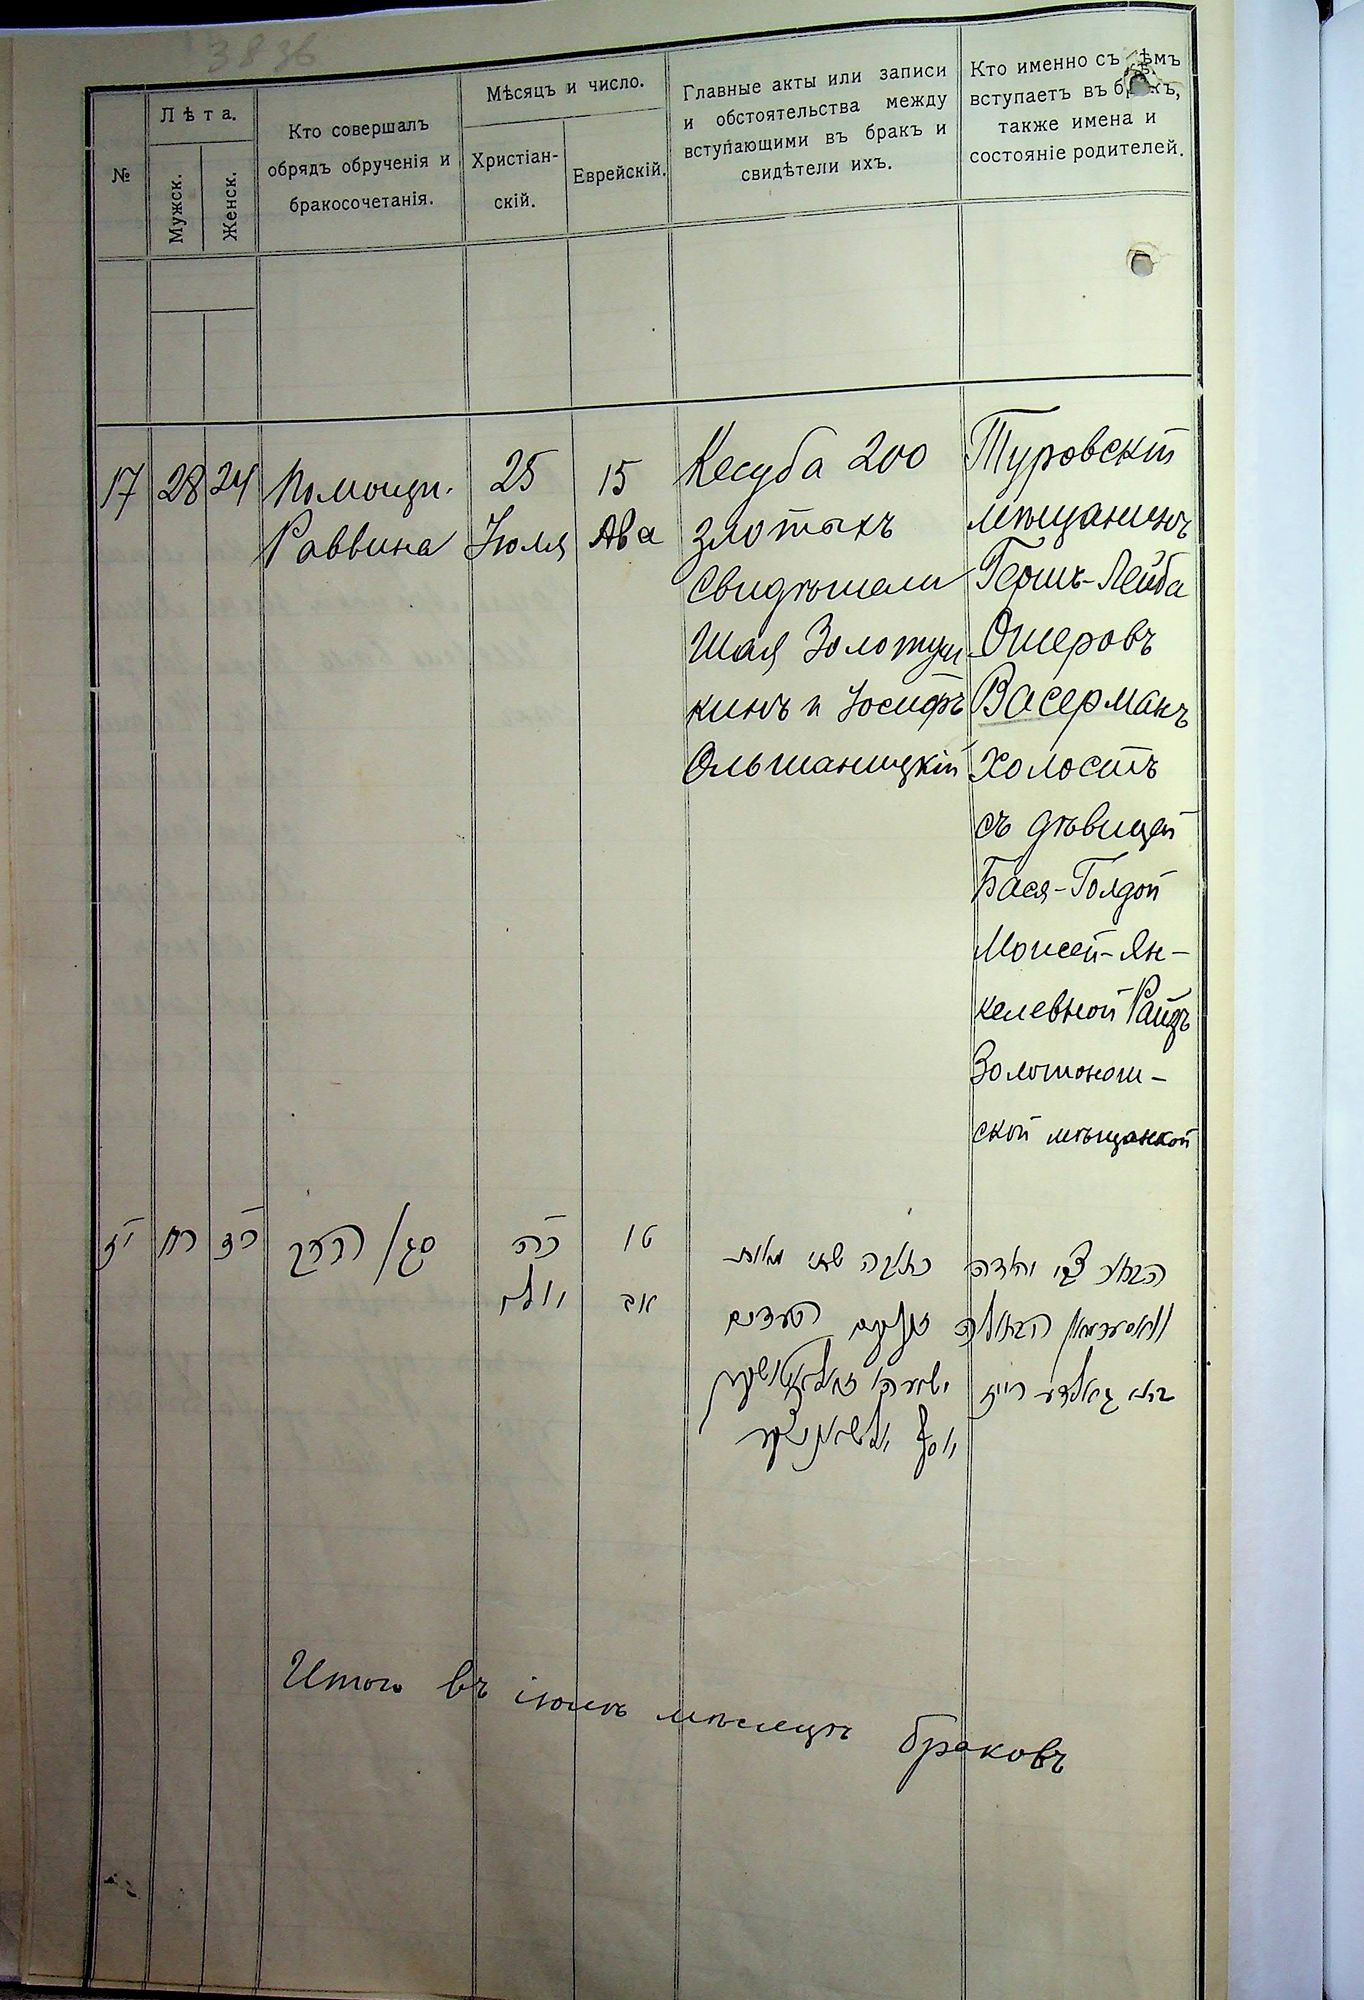 3836
№
Лѣта.
Мужск.
Женск.
Кто совершалъ
обрядъ обрученія и
бракосочетанія.
Мѣсяцъ и число.
Христіан-
скій.
Еврейскій.
Главные акты или записи
и обстоятельства между
вступающими въ бракъ и
свидѣтели ихъ.
Кто именно съ кѣмъ
вступаетъ въ бракъ,
также имена и
состояніе родителей.
17
28
24
Помощн.
Раввина
25
Іюля
15
Ава
Кесуба 200
злотыхъ
Свидѣтели
Шая Золотуш
кинъ и Іосифъ
Ольшаницкій
Туровскій
мѣщанинъ
Гершъ-Лейба
Ошеровъ
Васерманъ
холостъ
съ дѣвицей
Бася-Голдой
Моисей-Ян-
келевной Райзъ
Золотонош-
ской мѣщанкой
יז
כח
כד
סגן הרב
כה
יולי
טו
אב
כתובה שתי מאות
זהובים העדים
ישעיה
יוסף
הבחור צבי
הבתולה
גאלדע רייז
Итого въ іюлѣ мѣсяцѣ браковъ